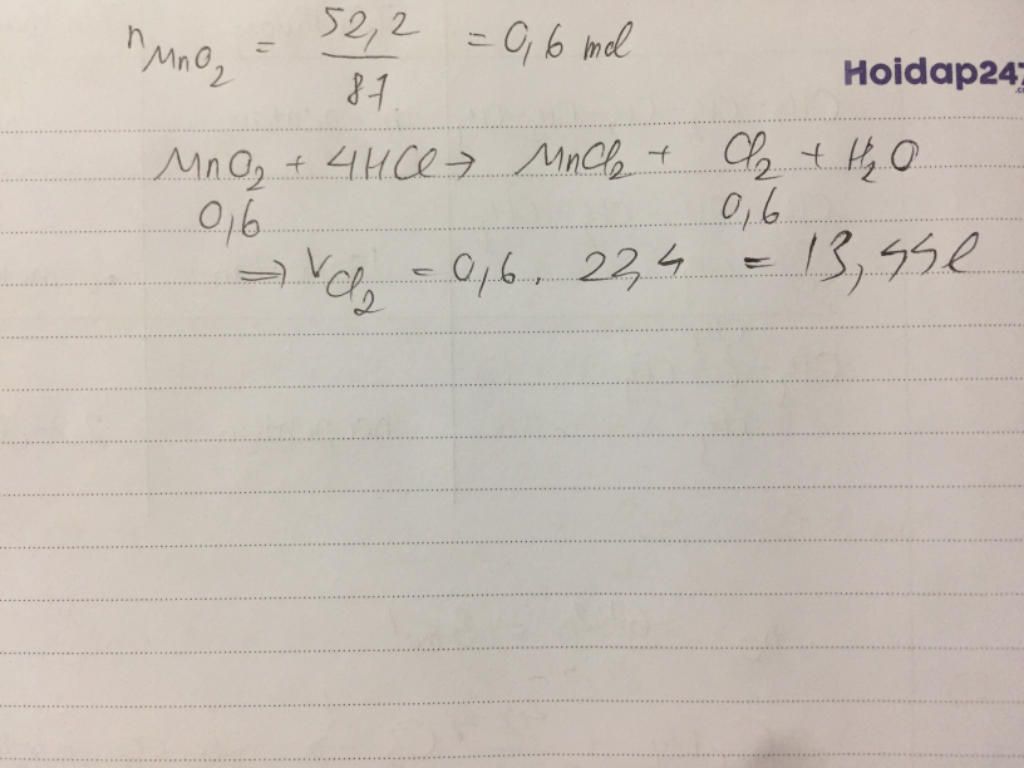 nMnO2 = 52,2 / 87 = 0,6 mol
Hoidap247
MnO2 + 4HCl → MnCl2 + Cl2 + H2O
0,6 0,6
⇒ VCl2 = 0,6 . 22,4 = 13,44l